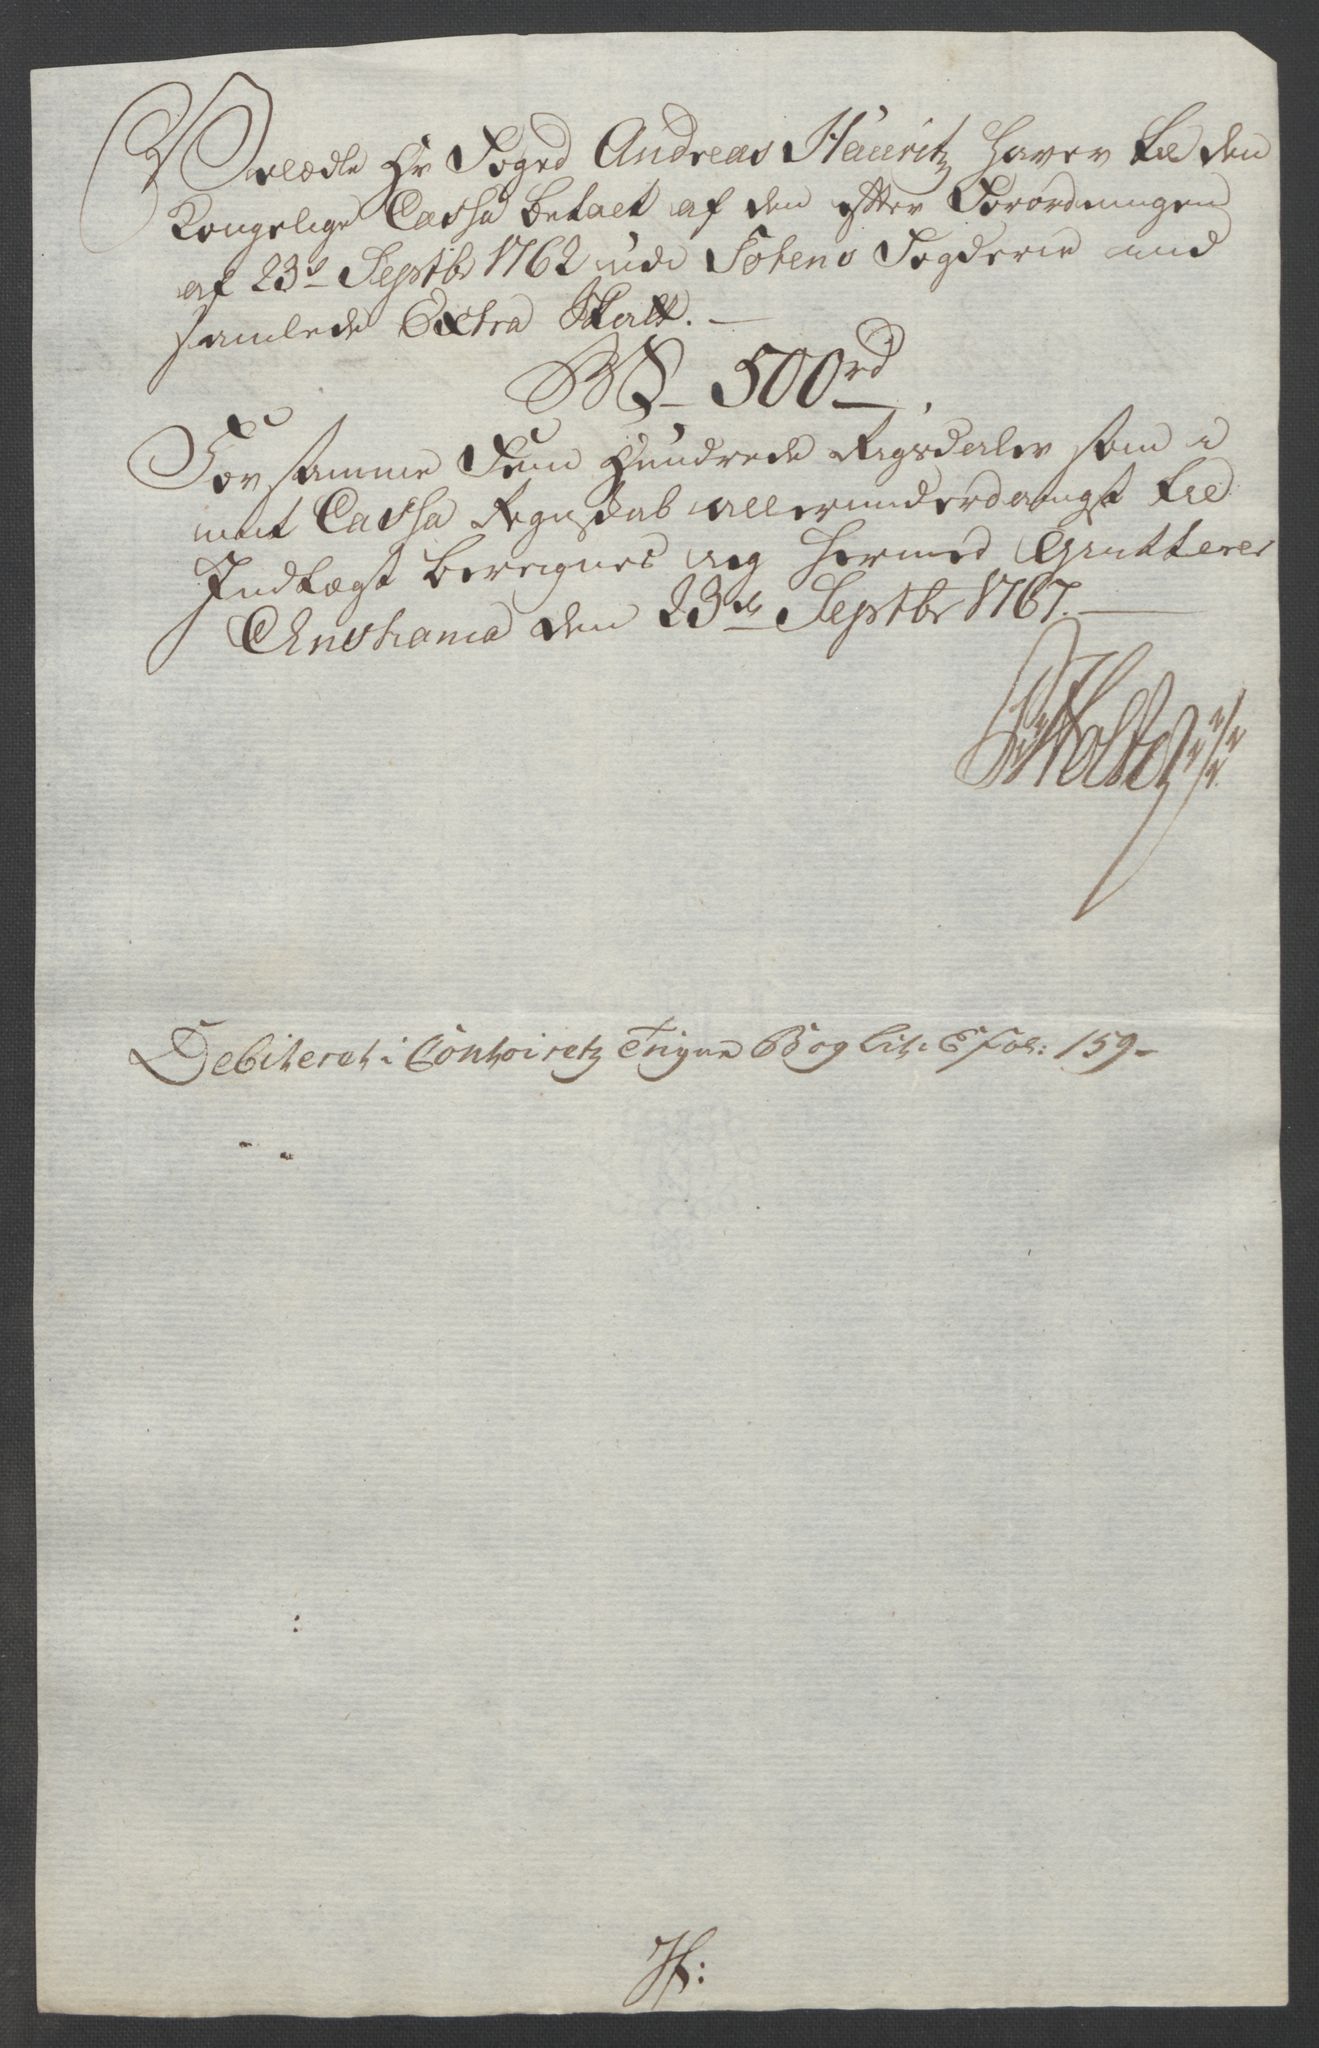 Velædle Hr Foged Andreas Hauritz haver til den
Kongelige Cassa betalt af den efter Forordningen
af 23de Septbr 1762 udi Totens Fogderie ind
samlede Extra Skatt. —
500rd
For samme Fem Hundrede Rigsdaler som i
mit Cassa Regnskab allerunderdanigst til
Indtægt bereignes ieg hermed Qvitterer
Christiania den 23de Septbr 1767. —
Holter
Debiteret i Contoiretz Trigne Bog Lit: E Fol: 159-
H: